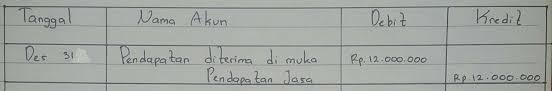 Tanggal Nama Akun Debit Kredit
Des 31 Pendapatan diterima di muka Rp. 12.000.000
Pendapatan Jasa Rp 12.000.000